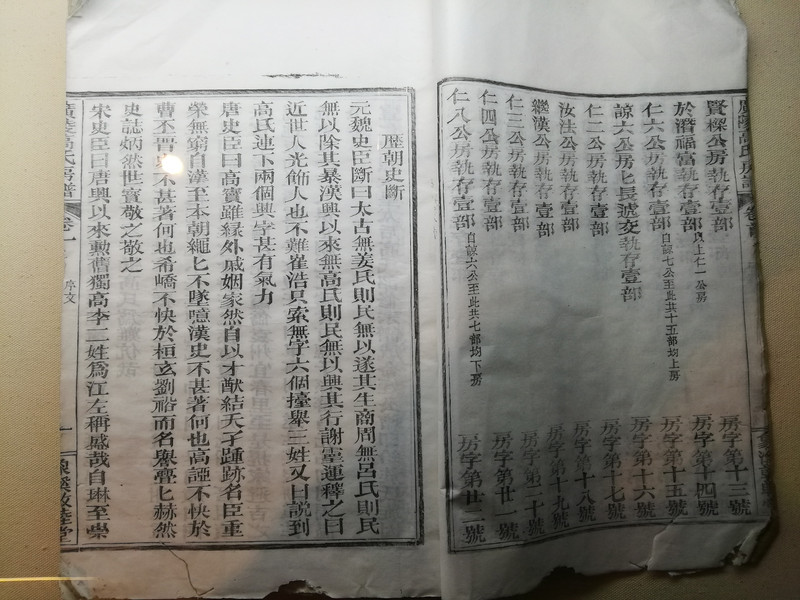 賢樑公房執存壹部 房字第十三號
於潛福富執存壹部 以上仁一公房 房字第十四號
仁六公房執存壹部 自諒七公至此共十五部均上房 房字第十五號
諒六公房匕長號交執存壹部 房字第十六號
仁二公房執存壹部 房字第十七號
汝法公房執存壹部 房字第十八號
繼漢公房執存壹部 房字第十九號
仁三公房執存壹部 房字第二十號
仁四公房執存壹部 房字第廿一號
仁八公房執存壹部 自諒六公至此共七部均下房 房字第廿二號
歷朝史斷
元魏史臣斷曰太古無姜氏則民無以遂其生商周無呂氏則民
無以除其暴漢興以來無高氏則民無以興其行謝靈運釋之曰
近世人光飾人也不難崔浩只索無字六個擡舉三姓又曰說到
高氏連下兩個興字甚有氣力
唐史臣曰高寶雖緣外戚姻家然自以才猷結天子踵跡名臣重
榮無窮自漢至本朝繩匕不墜噫漢史不甚著何也高誣不快於
曹丕晉史不甚著何也希嶠不快於桓玄劉裕而名譽亹匕赫然
史誌炳然世寶敬之敬之
宋史臣曰唐興以來勲舊獨高李二姓爲江左稱盛哉自琳至崇
廣陵高氏房譜 卷一 序文 一